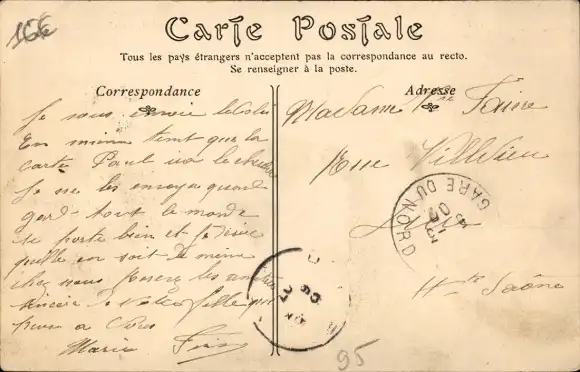 166
Carte Postale
Tous les pays étrangers n'acceptent pas la correspondance au recto.
Se renseigner à la poste.
Correspondance
Adresse
Je vous envoie le colis
En même temps que la
carte Paul va le chercher
Je ne les envoye quand
gard tout le monde
se porte bien et je désire
quelle en soit de même
chez vous
sincère Votre fille qui
pense a vous
Marie
Madame
Faivre
Rue Villedieu
Hte Saône
GARE DU NORD
95